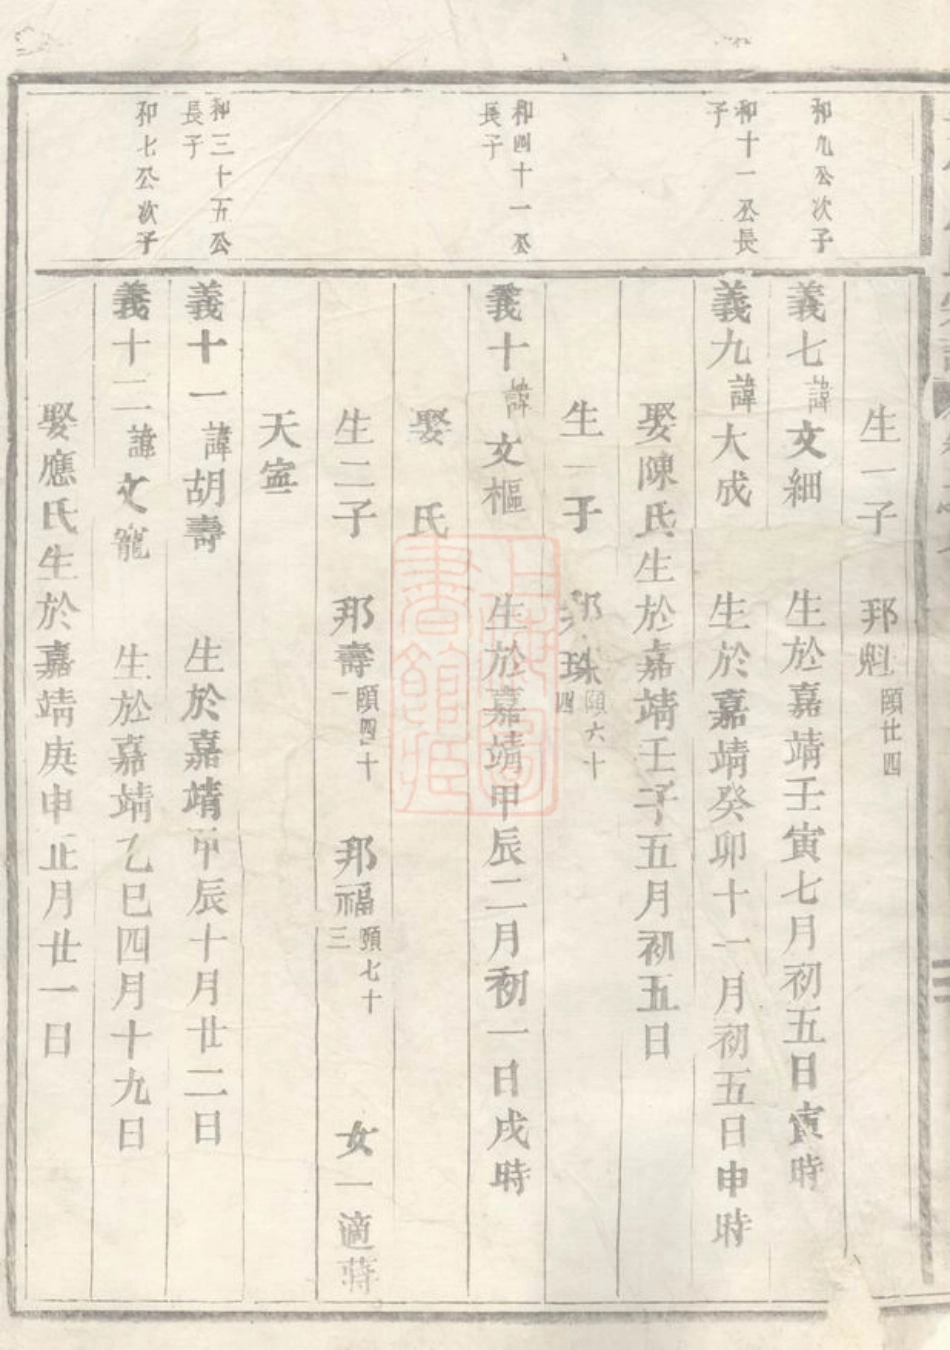 生一子 邦魁 頤廿四
和九公次子
義七 諱 文細 生於嘉靖壬寅七月初五日寅時
和十一公長子
義九 諱 大成 生於嘉靖癸卯十一月初五日申時
娶陳氏生於嘉靖壬子五月初五日
生一子 邦珠 頤六十四
和四十一公長子
義十 諱 文樞 生於嘉靖甲辰二月初一日戌時
娶 氏
生二子 邦壽 頤四十一 邦福 頤七十三 女一適蔣
天寧
和三十五公長子
義十一 諱 胡壽 生於嘉靖甲辰十月廿二日
和七公次子
義十二 諱 文寵 生於嘉靖乙巳四月十九日
娶應氏生於嘉靖庚申正月廿一日